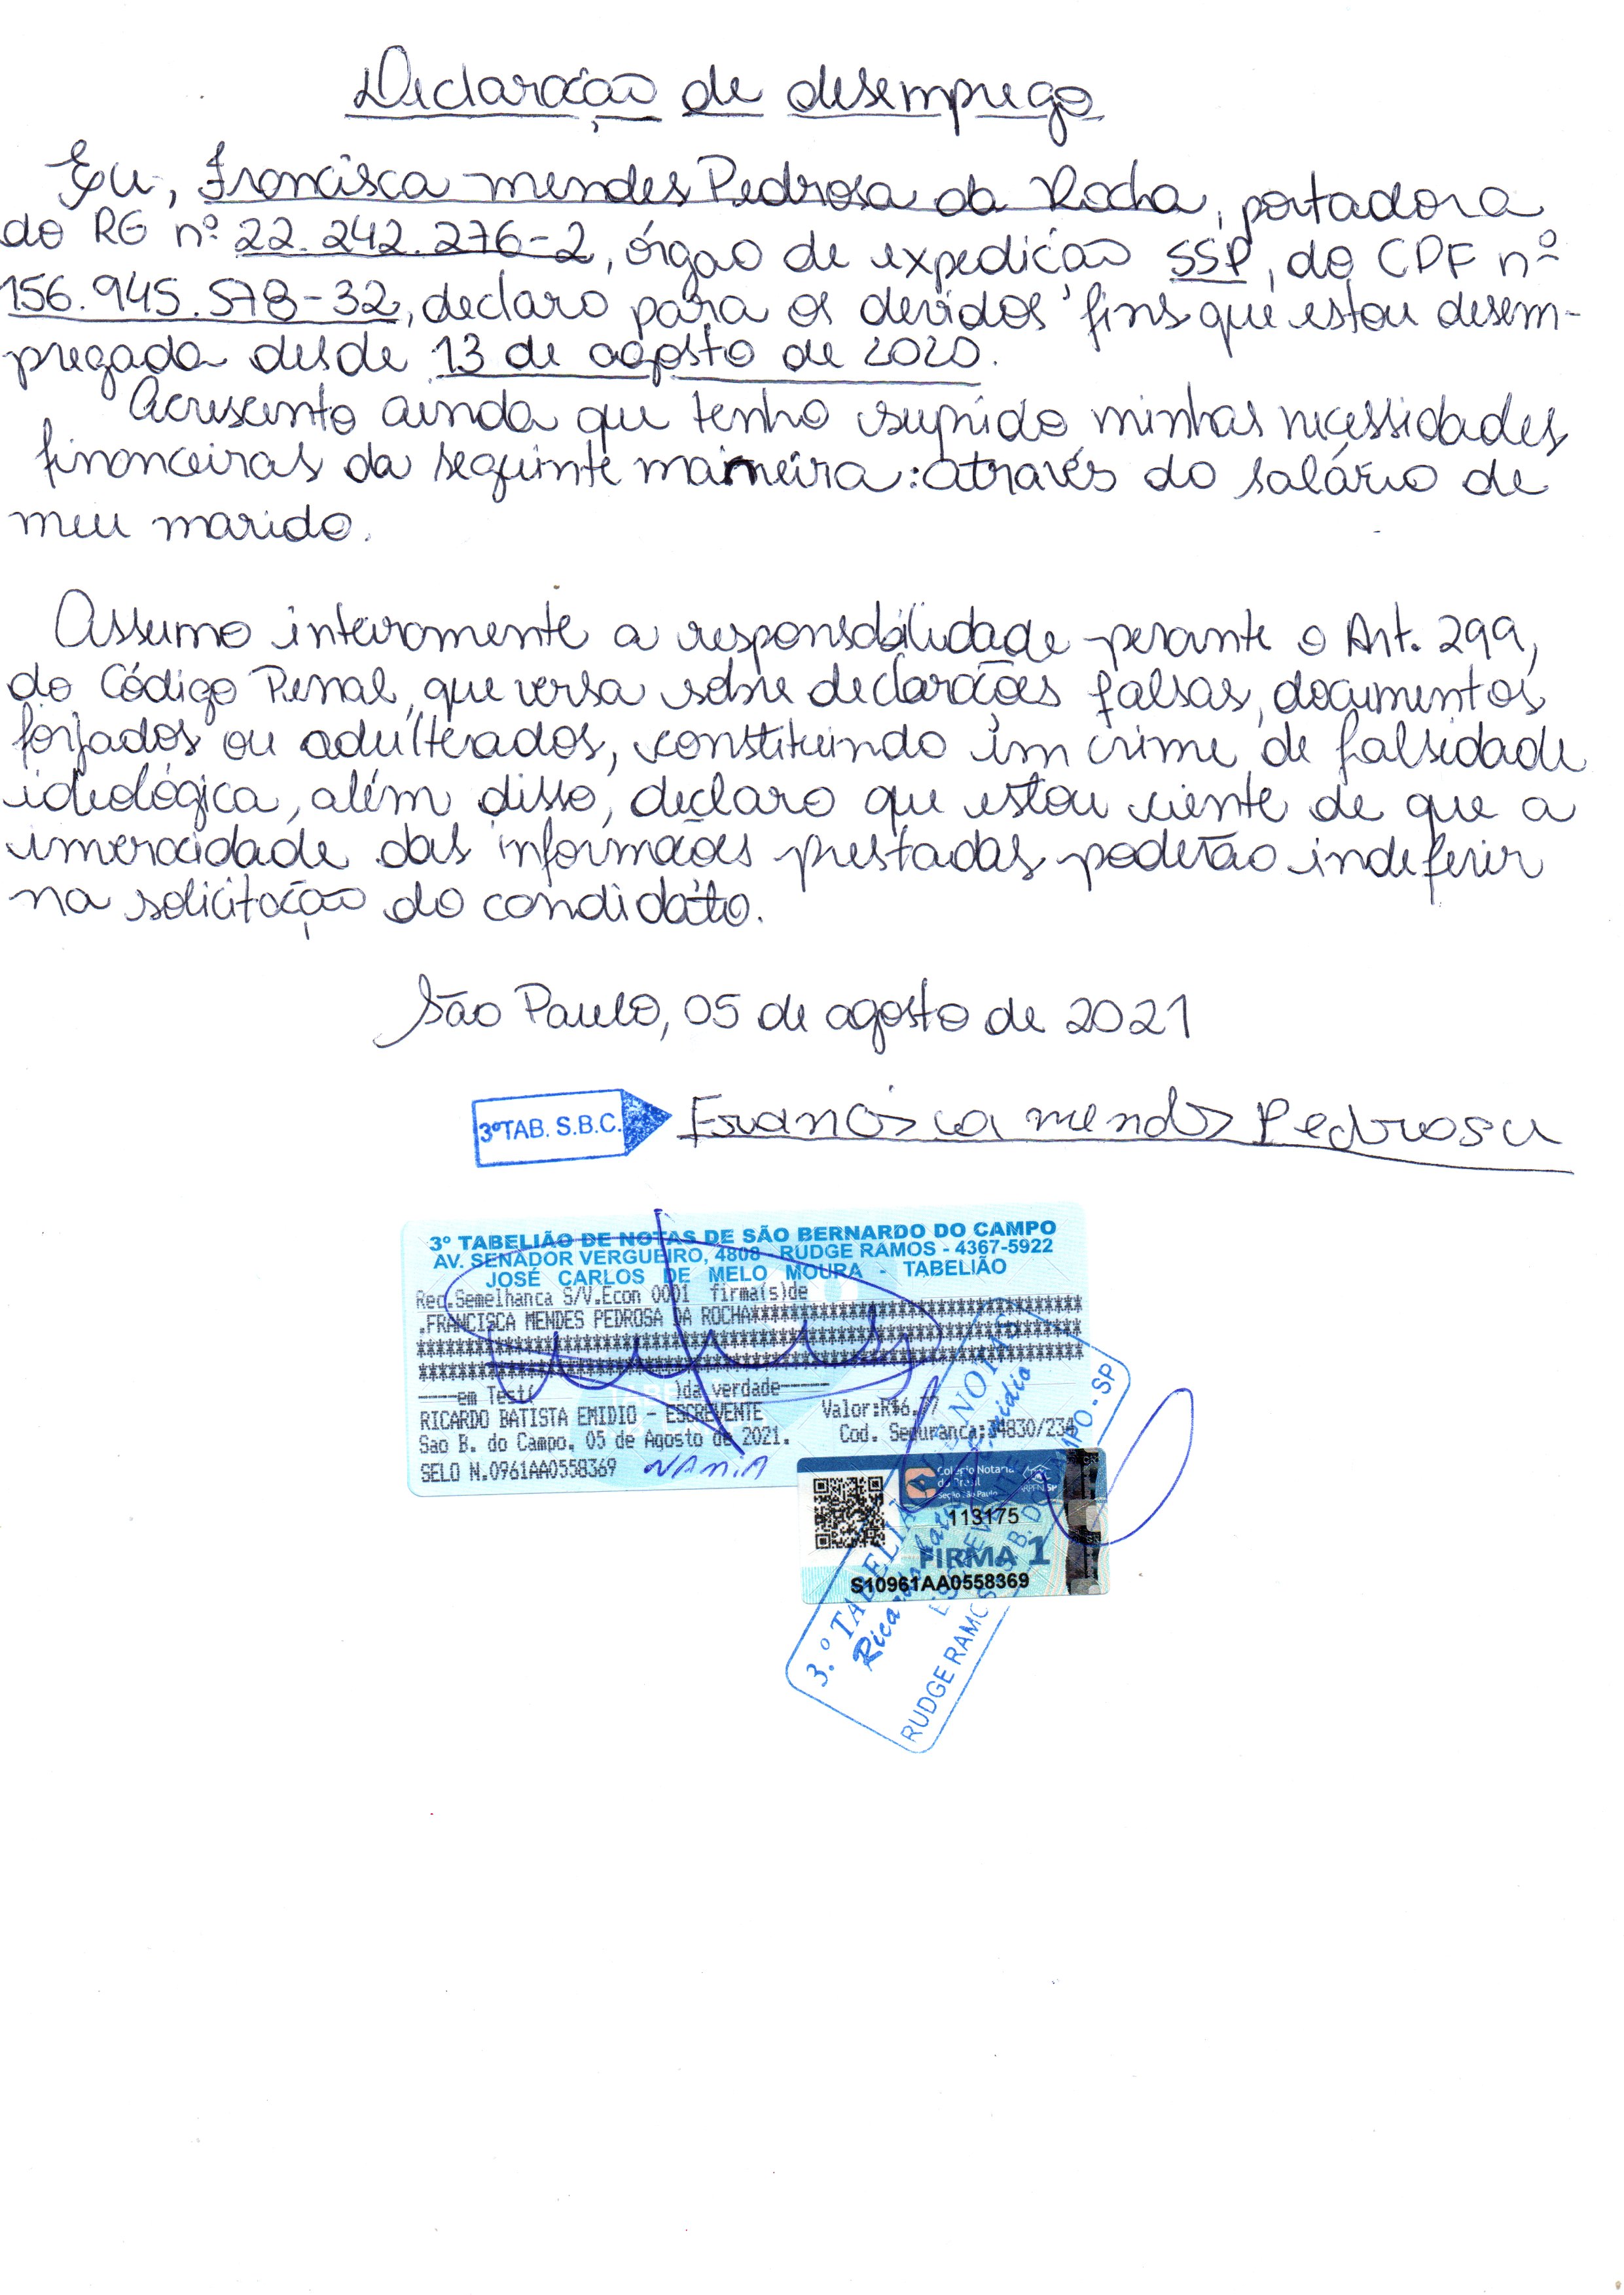 Declaração de desemprego
Eu, Francisca mendes Pedrosa da Rocha, portadora
do RG nº 22.242.276-2, órgao de expedição SSP, do CPF nº
156.945.578-32, declaro para os devidos fins que estou desem-
pregada desde 13 de agosto de 2020.
Acrescento ainda que tenho suprido minhas necessidades
financeiras da seguinte maneira: através do salário de
meu marido.
Assumo inteiramente a responsabilidade perante o Art. 299,
do Código Penal, que versa sobre declarações falsas, documentos
forjados ou adulterados, constituindo um crime de falsidade
ideológica, além disso, declaro que estou ciente de que a
inveracidade das informações prestadas poderão indeferir
na solicitação do candidato.
São Paulo, 05 de agosto de 2021
3ºTAB. S.B.C. Francisca mendes Pedrosa
3º TABELIÃO DE NOTAS DE SÃO BERNARDO DO CAMPO
AV. SENADOR VERGUEIRO, 4808 - RUDGE RAMOS - 4367-5922
JOSÉ CARLOS DE MELO MOURA - TABELIÃO
Rec.Semelhanca S/V.Econ 0001 firma(s)de
.FRANCISCA MENDES PEDROSA DA ROCHA
----em Test( )da verdade------
RICARDO BATISTA EMIDIO - ESCREVENTE Valor:R$6,77
Sao B. do Campo, 05 de Agosto de 2021. Cod. Seguranca:34830/234
SELO N.0961AA0558369
Colégio Notarial
do Brasil
Seção São Paulo
113175
FIRMA 1
S10961AA0558369
3.º TABELIÃO DE NOTAS
Ricardo Batista Emidio
ESCREVENTE
RUDGE RAMOS - S.B. DO CAMPO - SP